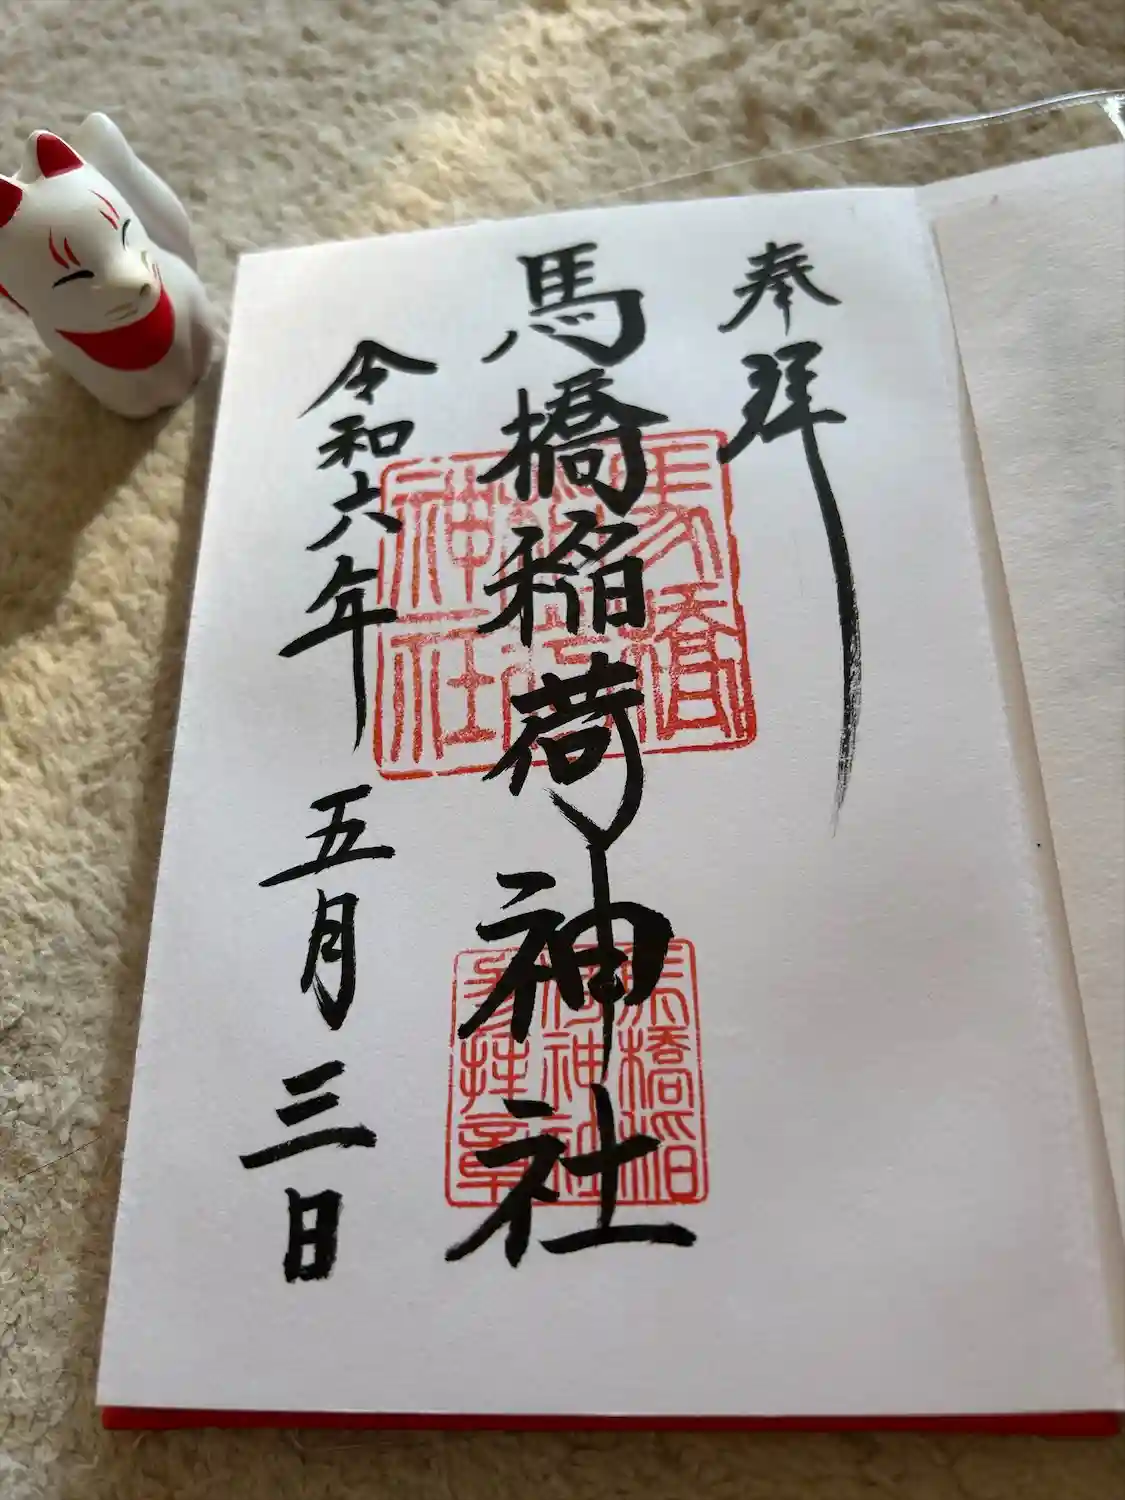 奉拝
馬橋稲荷神社
令和六年 五月三日
馬橋稲荷神社
馬橋稲荷神社参拝章